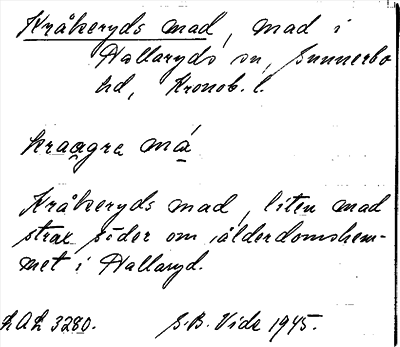 Kråkeryds mad, mad i
Hallaryds sn, Sunnerbo
hd, Kronob. l.
kraagra má
Kråkeryds mad, liten mad
strax söder om ålderdomshem-
met i Hallaryd.
LAL 3280. S.B. Vide 1945.